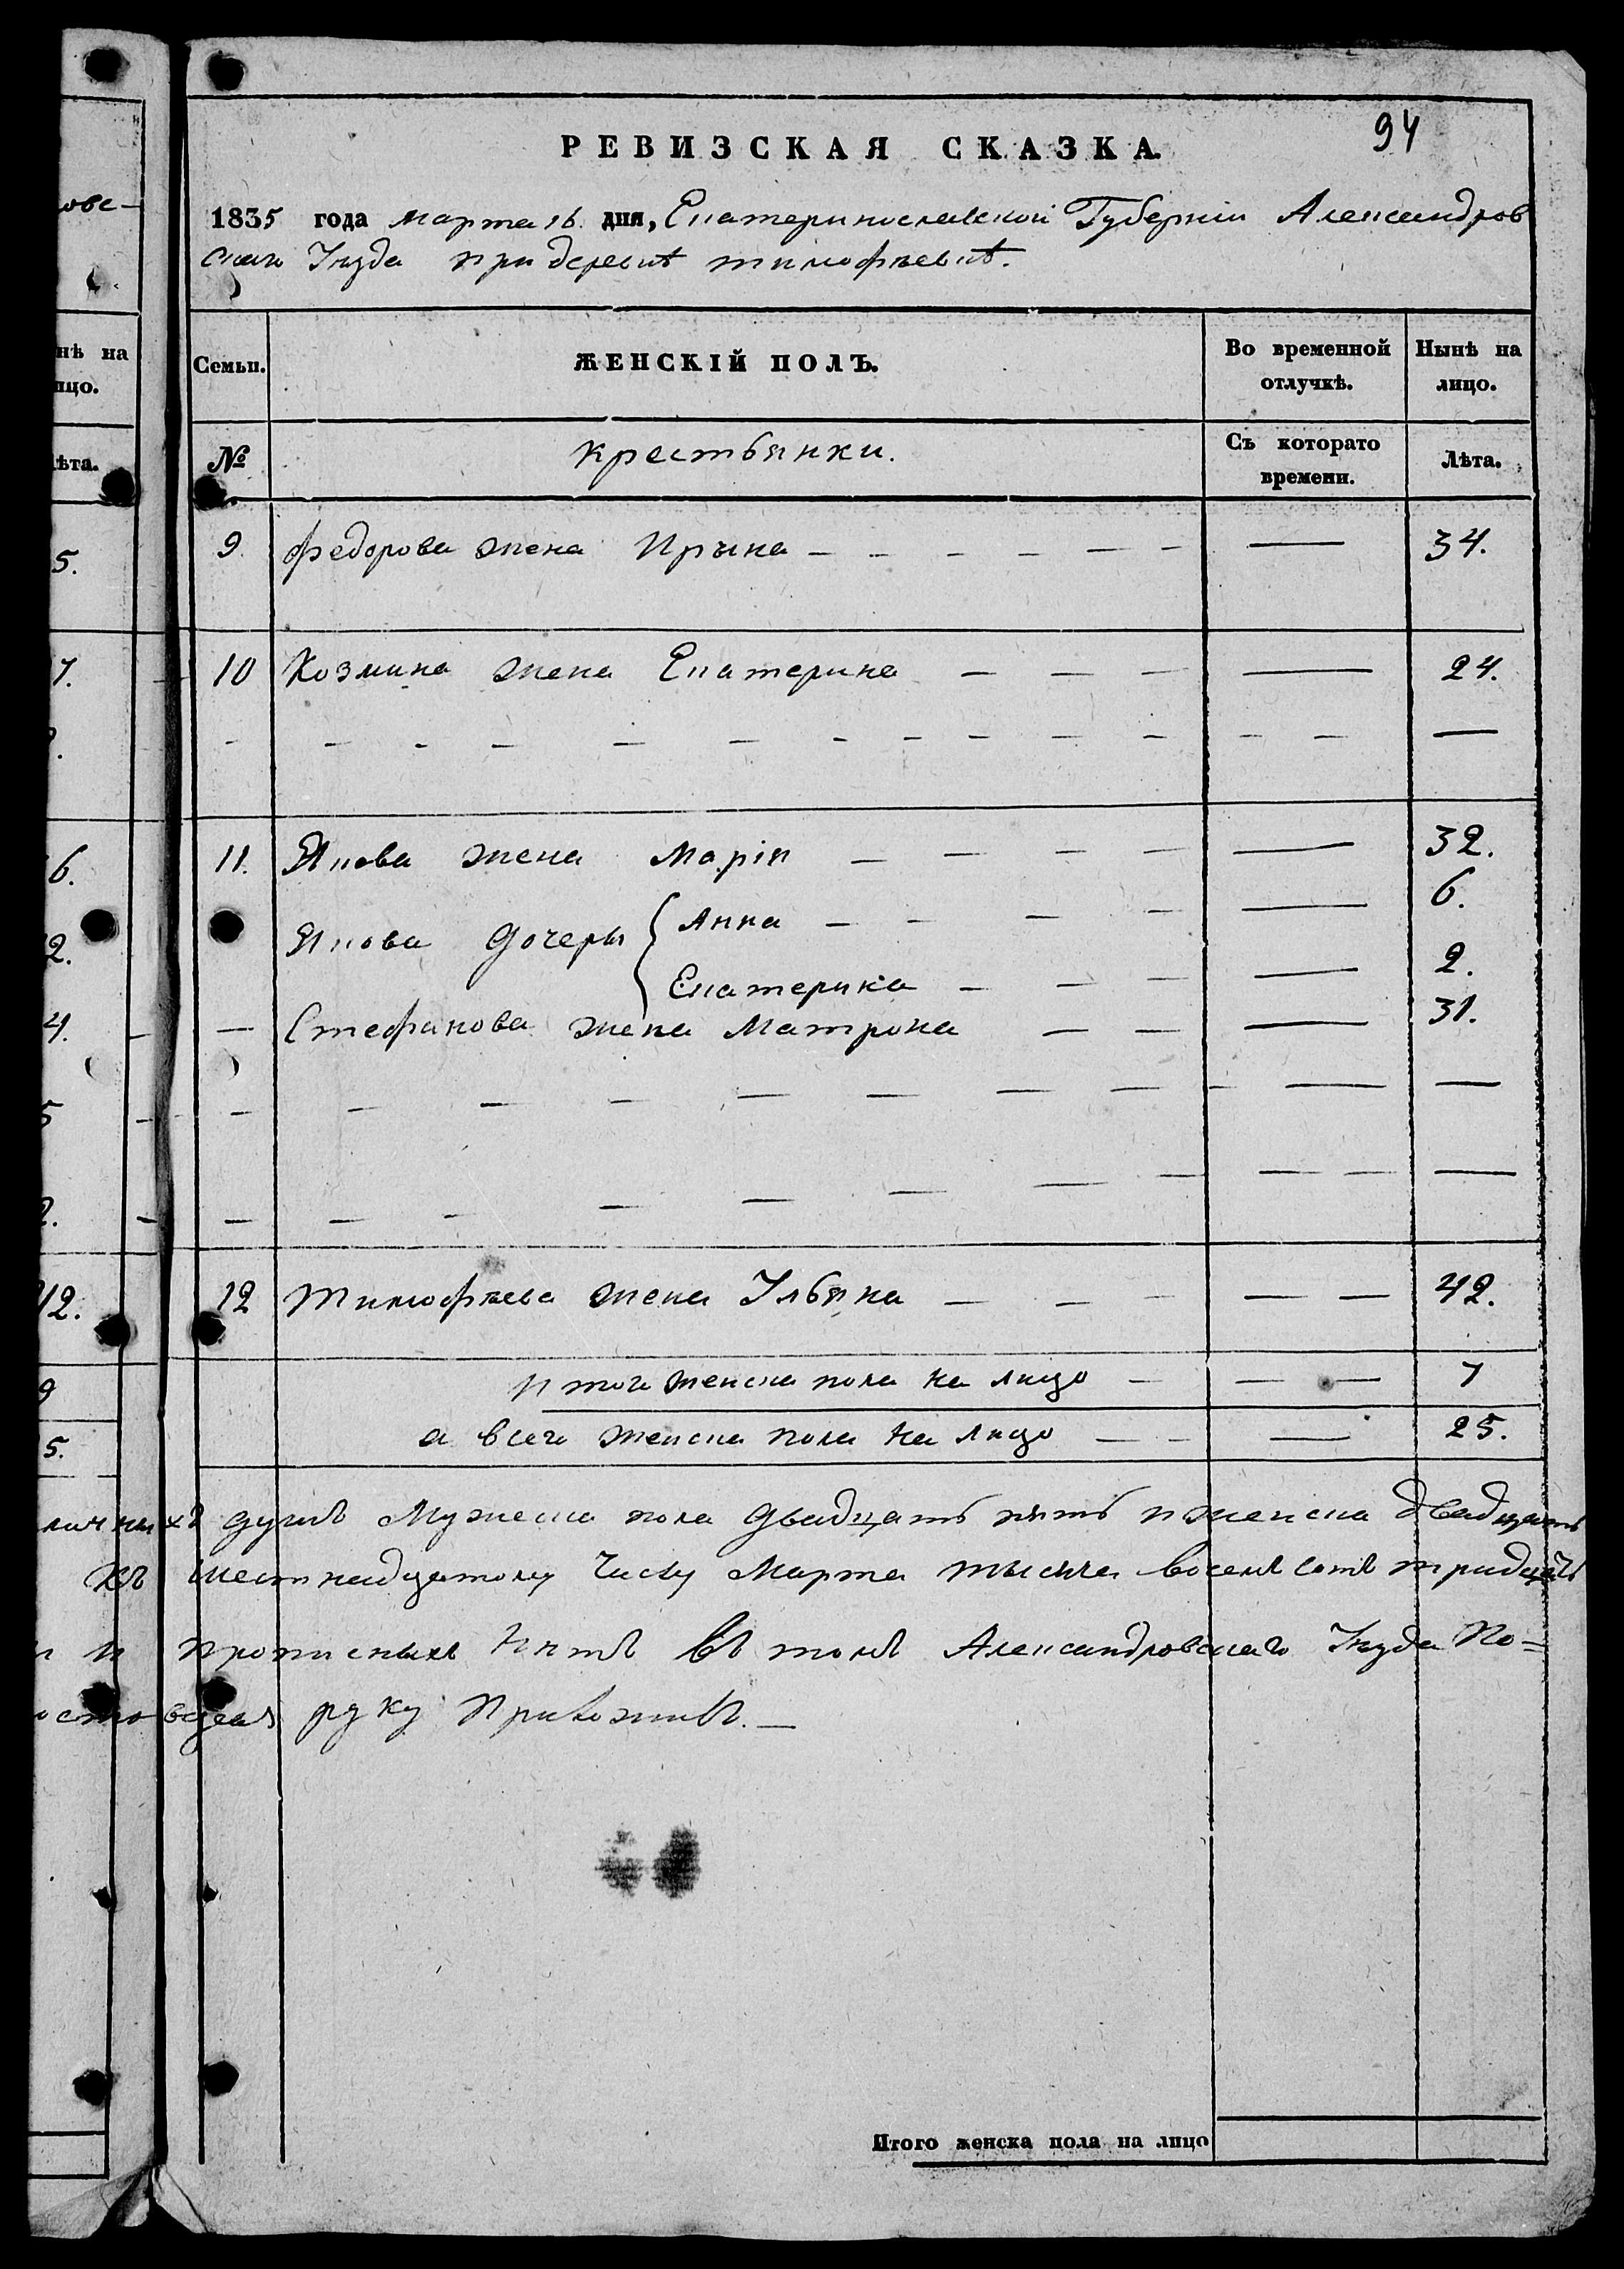 94
РЕВИЗСКАЯ СКАЗКА.
1835 года марта 16 дня, Екатеринославской Губерніи Александров
скаго Уезда при деревнѣ тимофѣевнѣ.
Семьи. ЖЕНСКІЙ ПОЛЪ. Во временной отлучкѣ. Нынѣ на лицо.
№ крестьянки. Съ котораго времени. Лѣта.
9. федорова жена Ирына — — — — — — — 34.
10 Козмина жена Екатерина — — — — 24.
11. Якова жена Марія — — — — — 32.
Якова дочеры { Анна — — — — — 6.
Екатерина — — — — 2.
— Стефанова жена Матрона — — — 31.
12 Тимофѣева жена Ульяна — — — — — 42.
Итого женска пола на лицо — — — 7
а всего женска пола на лицо — — — 25.
личныхъ душъ Мужеска пола двадцать пять и женска двадцать
къ шестнадцатому числу Марта тысяча восемъ сотъ тридцать
и прописныхъ нѣтъ въ томъ Александровскаго Уезда По=
руку Приложилъ. —
Итого женска пола на лицо
нѣ на
ицо.
ѣта.
5.
7.
6.
2.
4.
5
2.
42.
9
5.